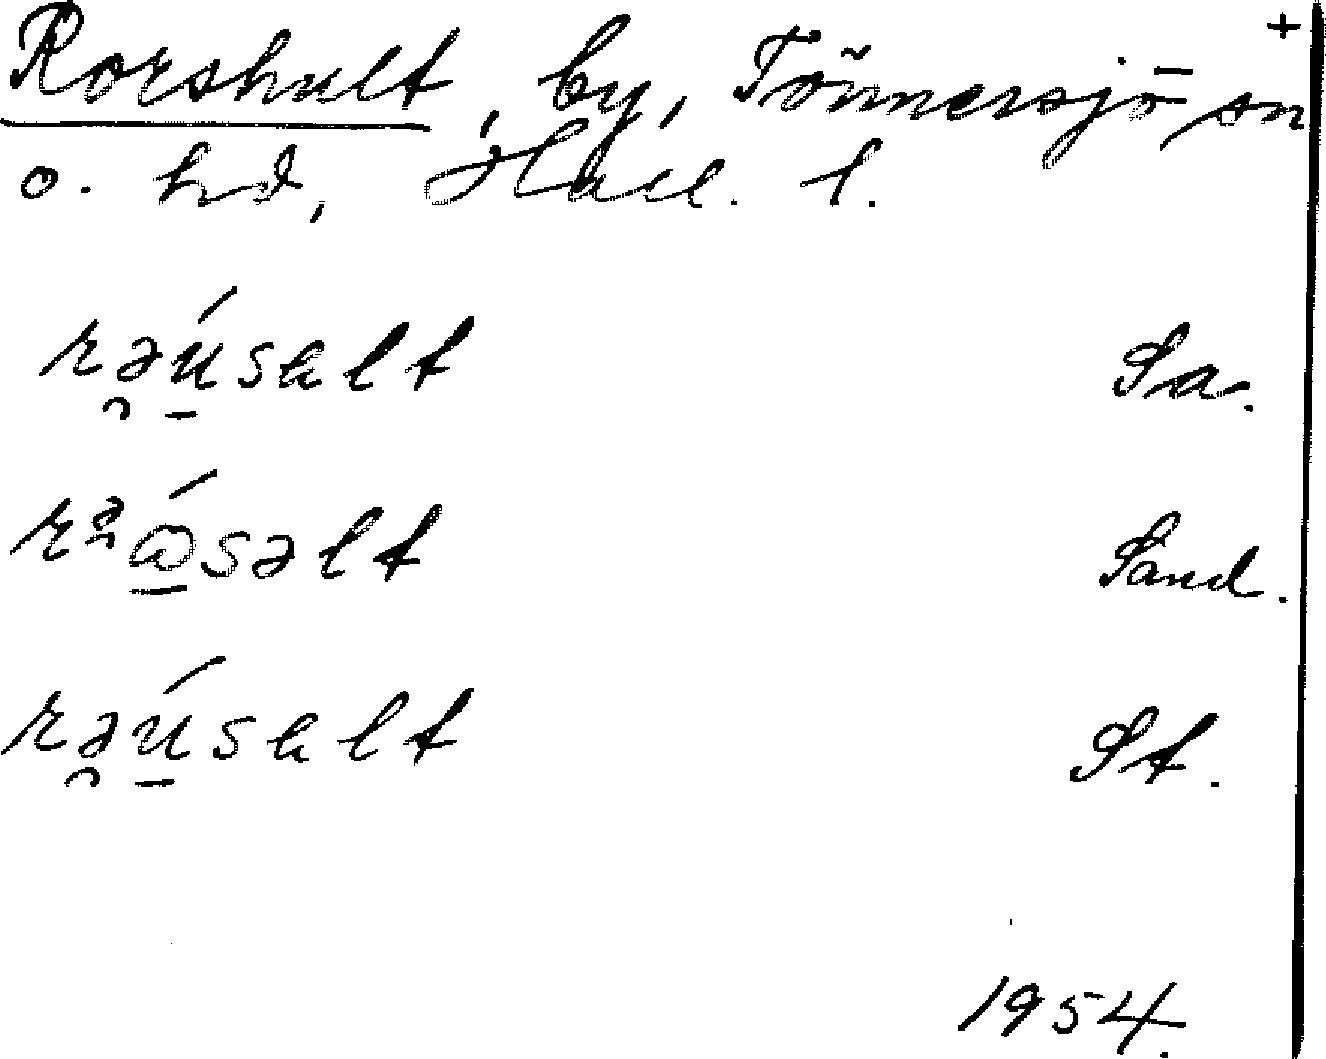 +
Rorshult, by, Tönnersjö sn
o. hd, Hall. l.
rə̯ú̱salt Sa.
rᵊώ̱səlt Sand.
rə̯ú̱salt St.
1954.